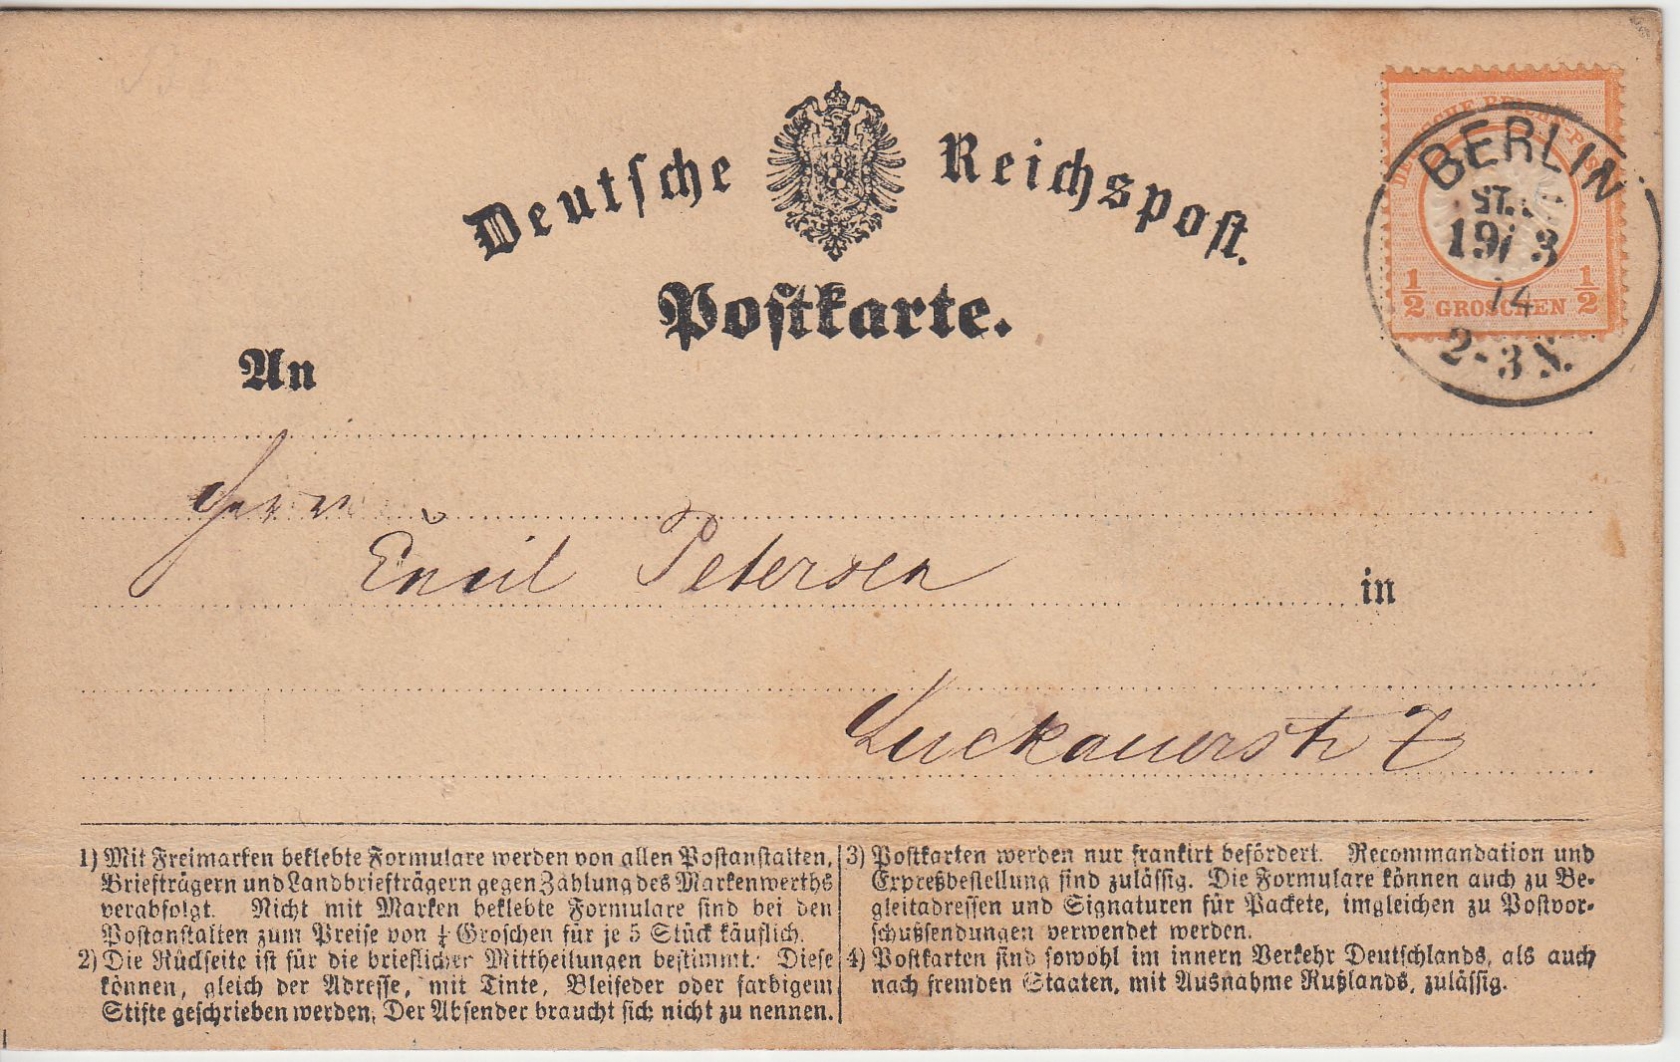 Deutsche Reichspost.
Postkarte.
DEUTSCHE REICHS-POST
½ GROSCHEN ½
BERLIN
ST.
19/3
74
2-3 N.
An
Herrn
Emil Petersen
in
Luckauerstr 7
1) Mit Freimarken beklebte Formulare werden von allen Postanstalten,
Briefträgern und Landbriefträgern gegen Zahlung des Markenwerths
verabfolgt. Nicht mit Marken beklebte Formulare sind bei den
Postanstalten zum Preise von ¼ Groschen für je 5 Stück käuflich.
2) Die Rückseite ist für die brieflichen Mittheilungen bestimmt. Diese
können, gleich der Adresse, mit Tinte, Bleifeder oder farbigem
Stifte geschrieben werden. Der Absender braucht sich nicht zu nennen.
3) Postkarten werden nur frankirt befördert. Recommandation und
Expreßbestellung sind zulässig. Die Formulare können auch zu Be-
gleitadressen und Signaturen für Packete, imgleichen zu Postvor-
schußsendungen verwendet werden.
4) Postkarten sind sowohl im innern Verkehr Deutschlands, als auch
nach fremden Staaten, mit Ausnahme Rußlands, zulässig.